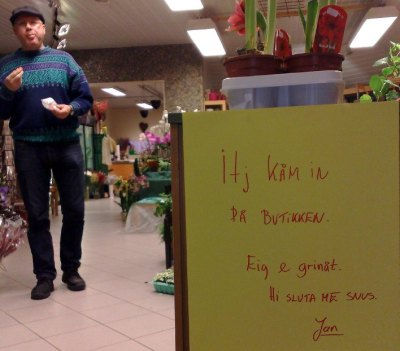 Itj KÅM IN
PÅ BUTIKKEN.
Eig e grinåt.
HI SLUTA ME SNUS.
Jan